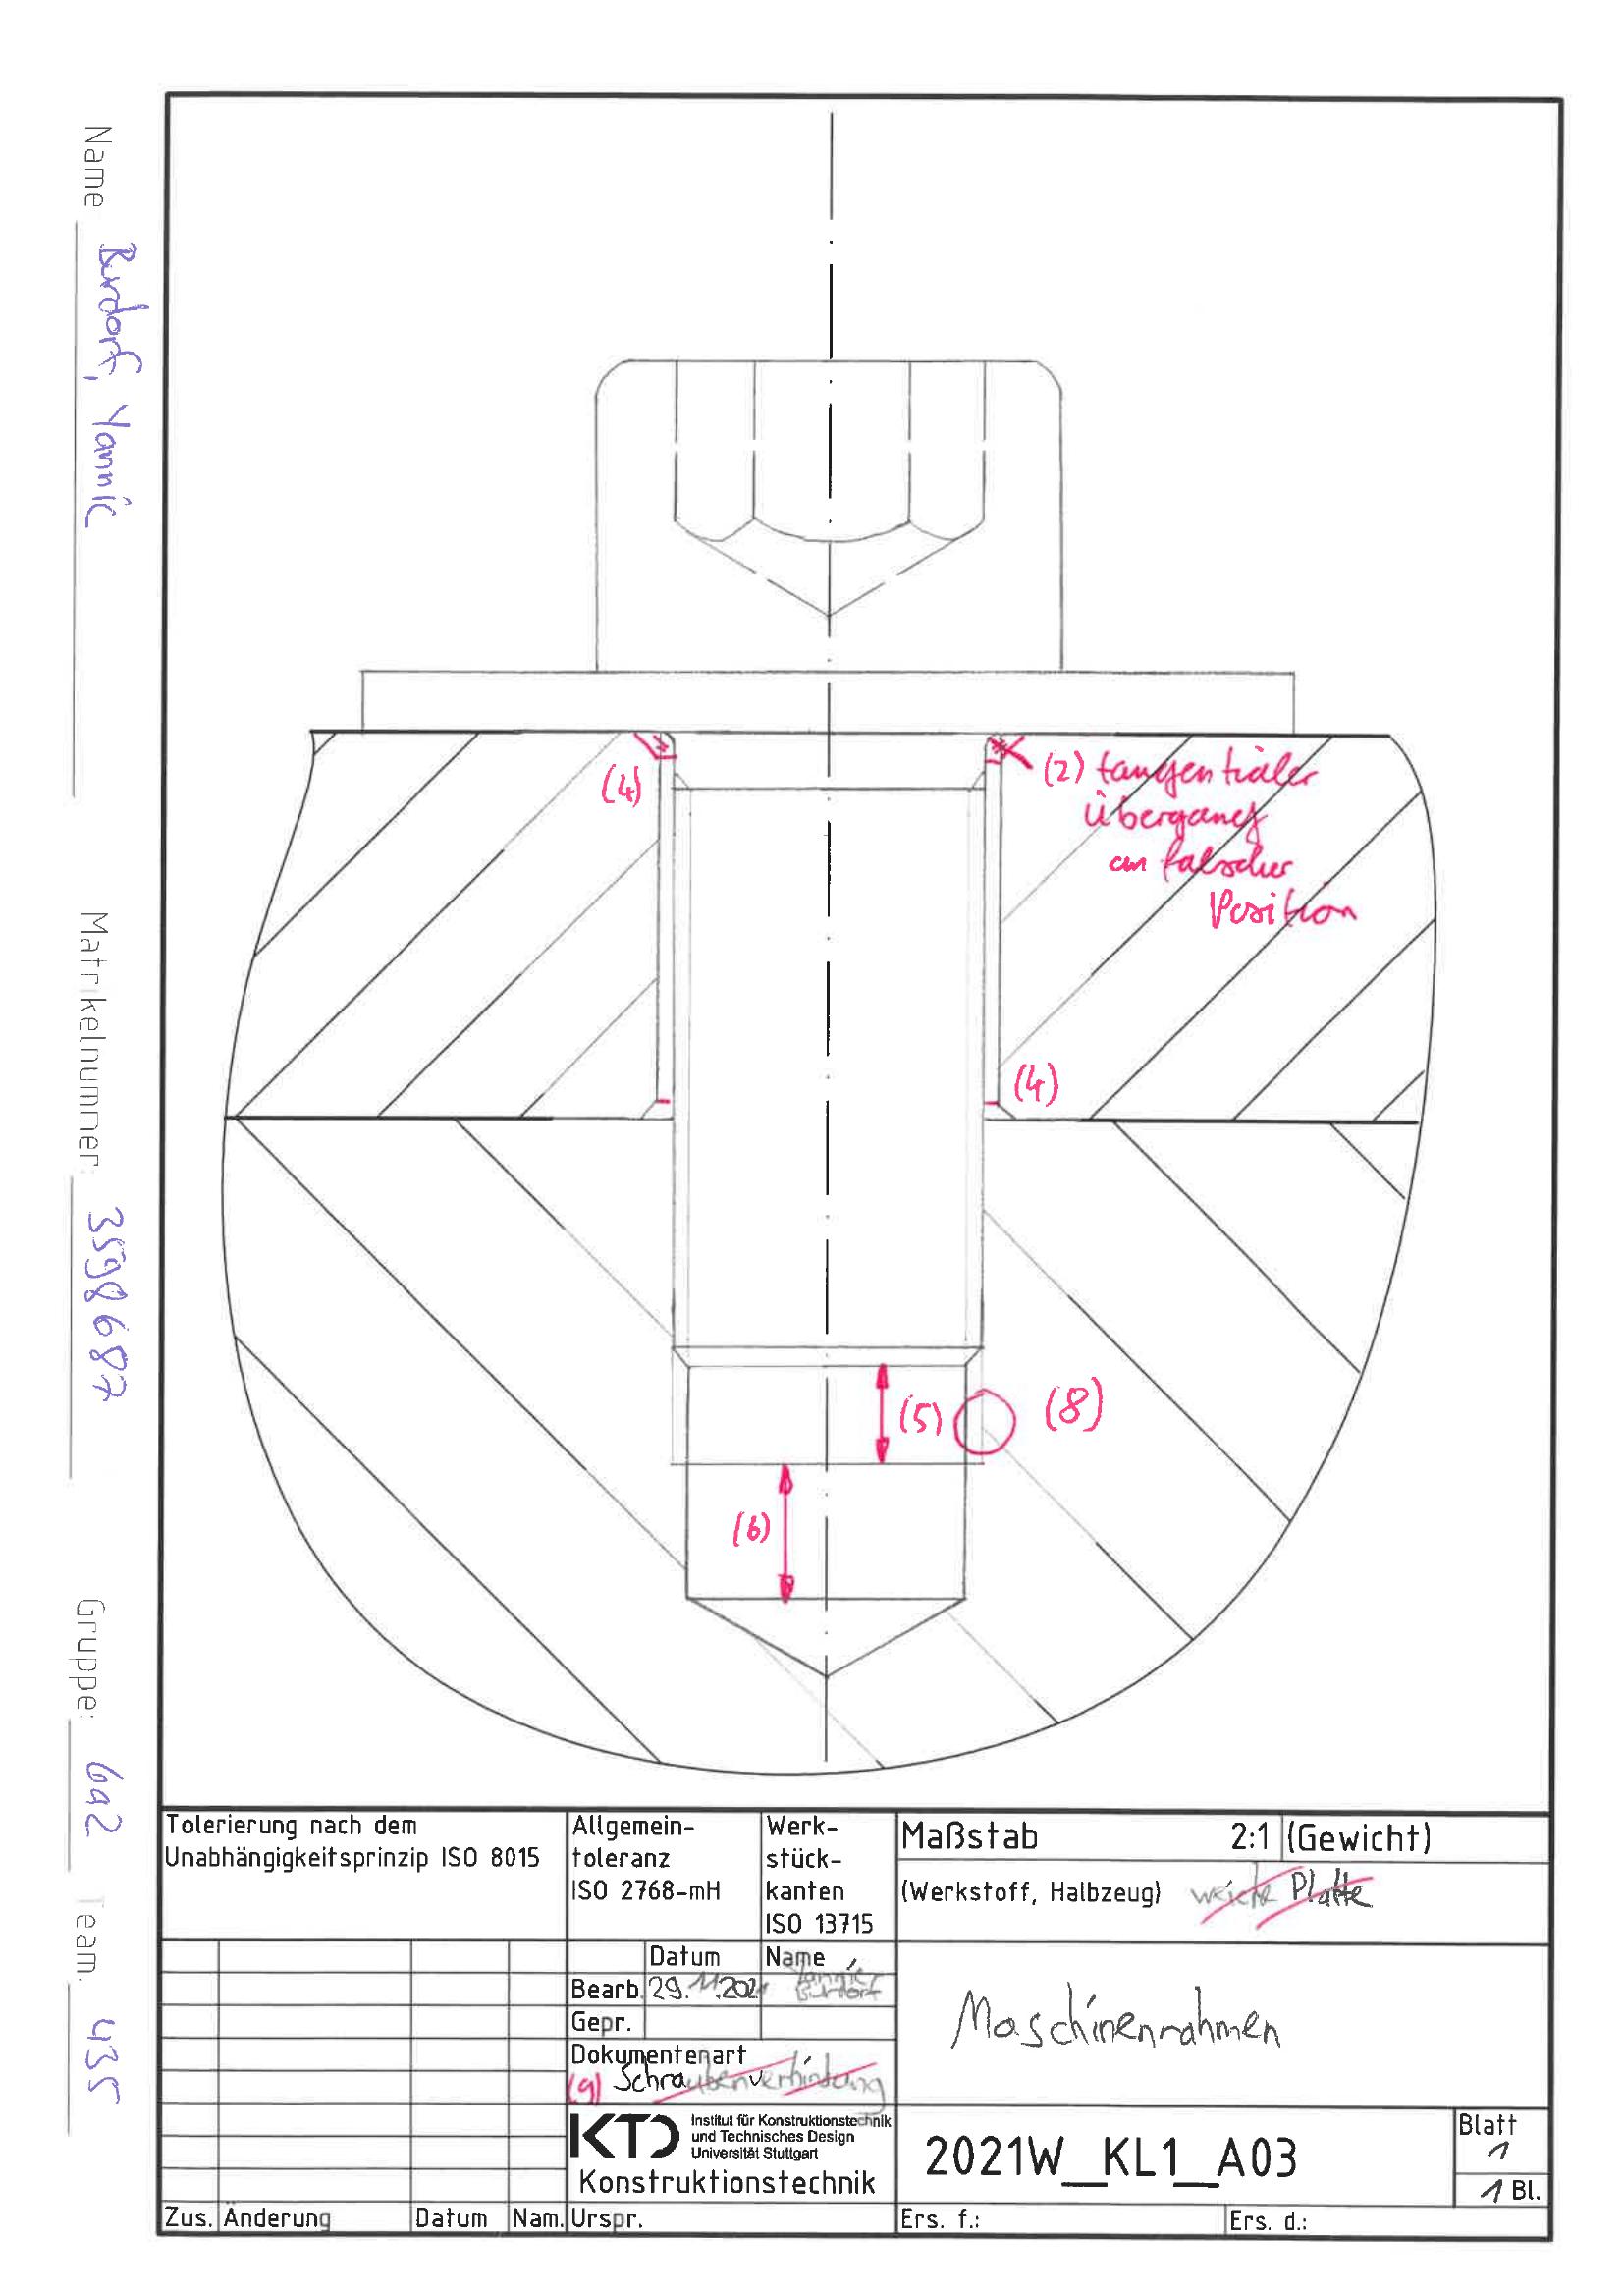 Name Burdorf, Yannic
Matrikelnummer: 3598687
Gruppe: 6a2
Team. 435
(4)
(2) tangentialer
Übergang
an falscher
Position
(4)
(5)
(8)
(6)
Tolerierung nach dem
Unabhängigkeitsprinzip ISO 8015
Allgemein-
toleranz
ISO 2768-mH
Werk-
stück-
kanten
ISO 13715
Maßstab 2:1 (Gewicht)
(Werkstoff, Halbzeug) weiche Platte
Datum Name
Bearb. 29.11.2021 Yannic
Burdorf
Gepr.
Dokumentenart
(9) Schraubenverbindung
Maschinenrahmen
KTD Institut für Konstruktionstechnik
und Technisches Design
Universität Stuttgart
Konstruktionstechnik
2021W_KL1_A03
Blatt
1
1 Bl.
Zus. Änderung Datum Nam. Urspr. Ers. f.: Ers. d.: